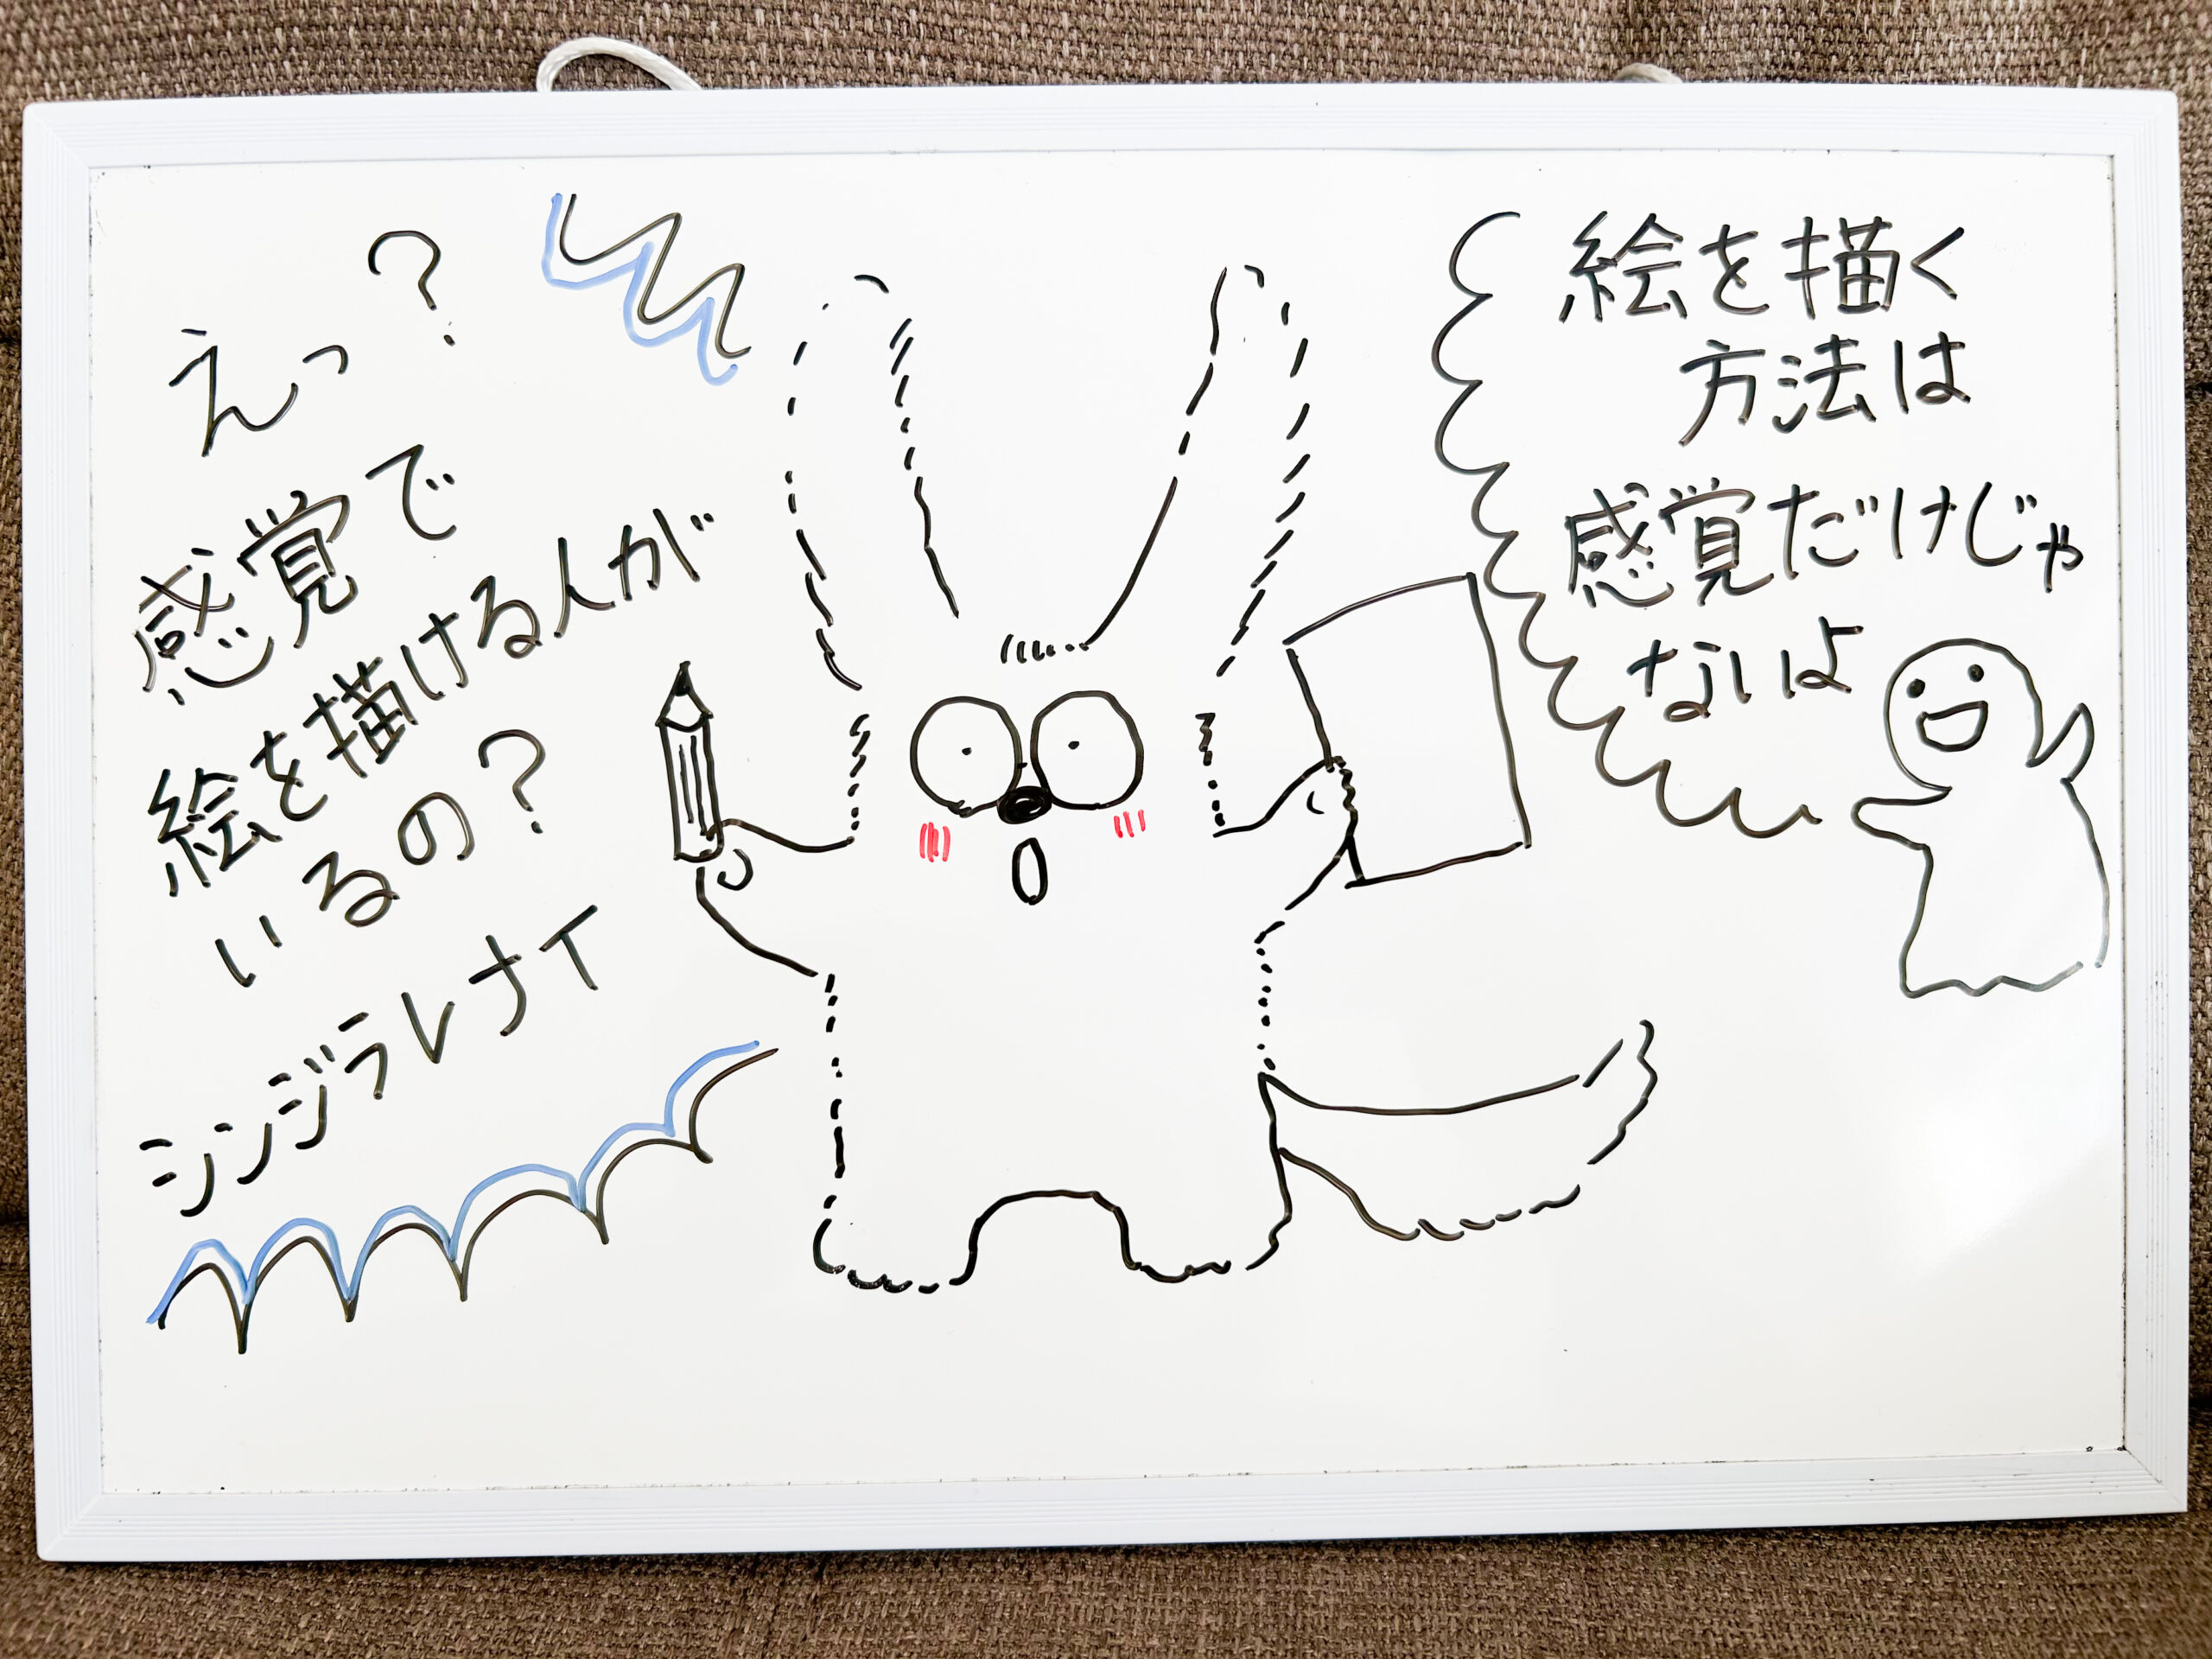 えっ?
感覚で
絵を描ける人が
いるの?
シンジラレナイ
絵を描く
方法は
感覚だけじゃ
ないよ